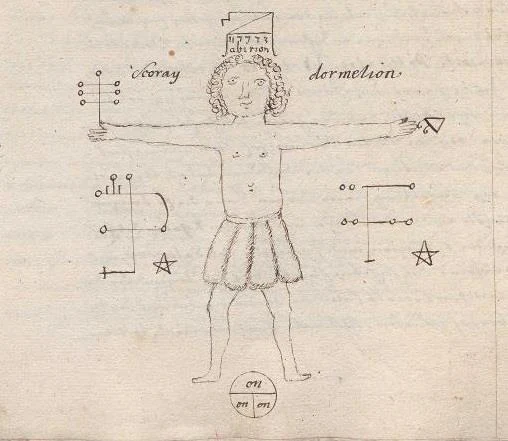 abirion
Scoray dormelion
on
on on